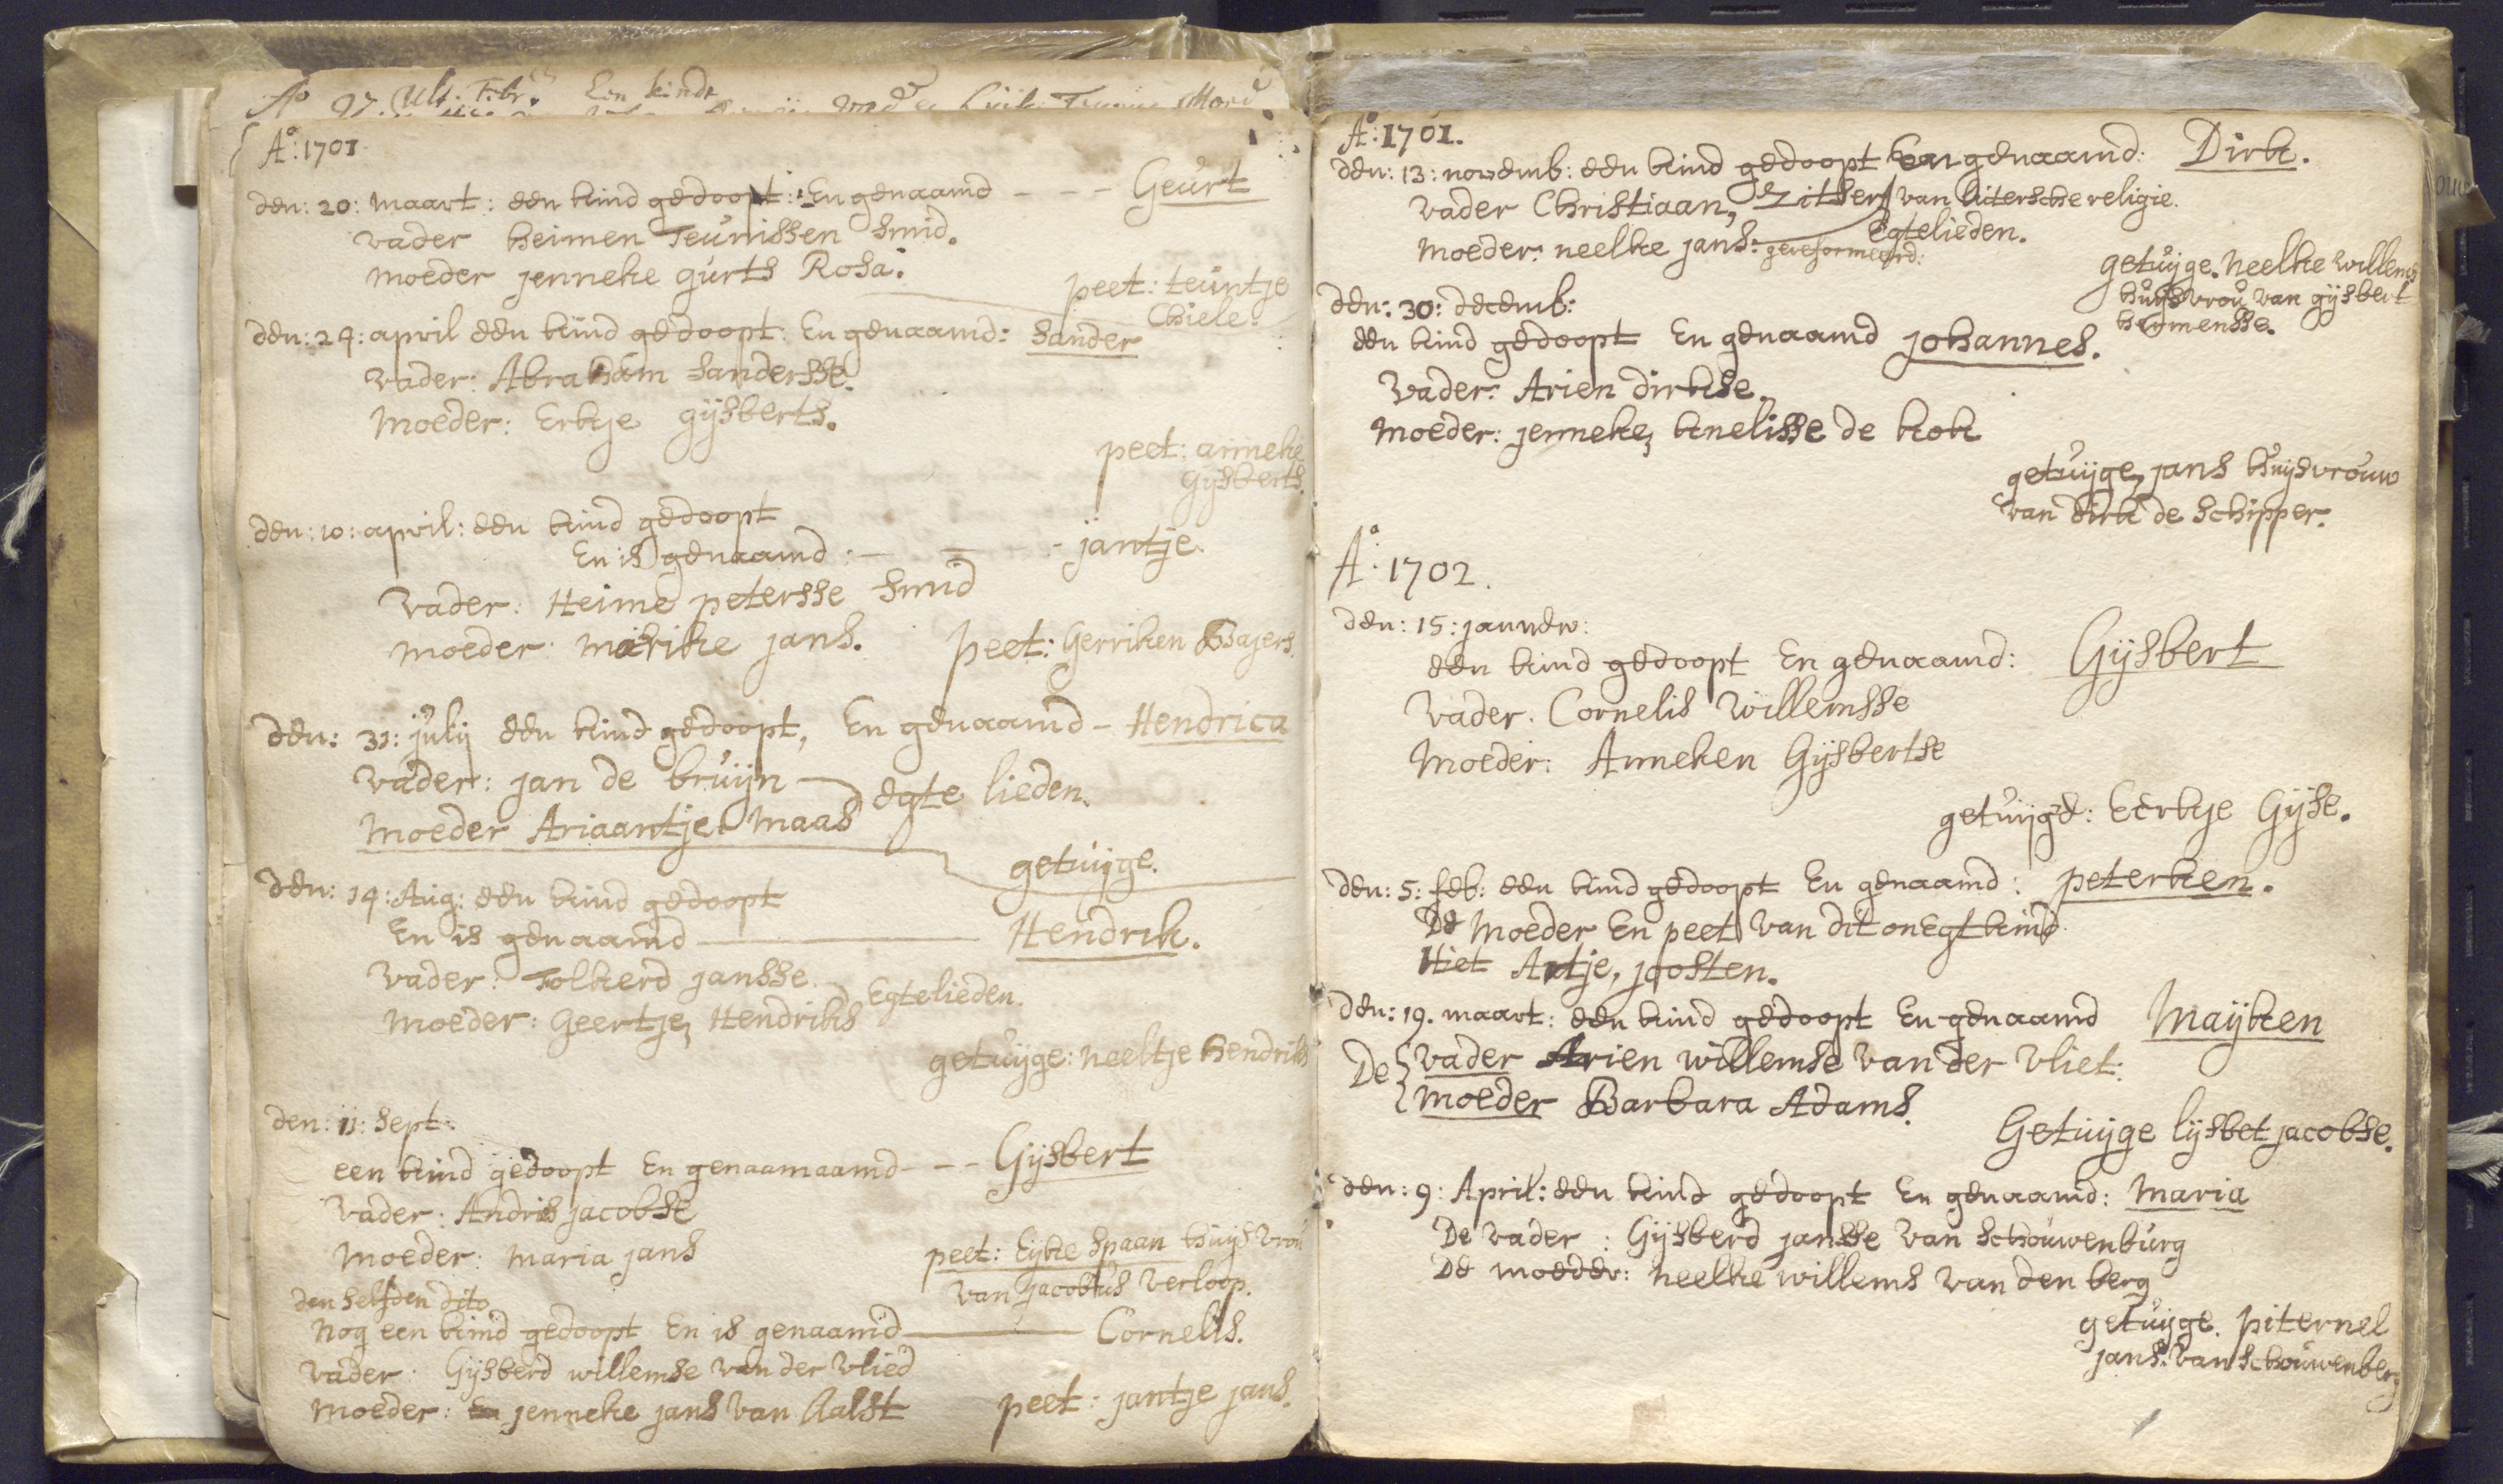 Ao 97. Ult. Febr. Een kindt
A°: 1701.
den: 20: maart: een kind gedoopt: En genaamd - - - Geurt
vader heimen Teunissen Smid.
moeder jenneke gurts Rosa.
peet: teuntje
Chiele.
den: 24: april een kind gedoopt: En genaamd: Sander
vader: Abraham Sandersse.
Moeder: Erkje gijsberts.
peet: anneke
gijsberts.
den: 10: april: een kind gedoopt
En is genaamd: — = - jantje.
Vader: Heime petersse Smid
moeder: marike jans. peet: Gerriken Baijers.
den: 31: julij een kind gedoopt, En genaamd - Hendrica
vader: jan de bruijn
egte lieden.
Moeder Ariaantje Maas
getuijge.
den: 14: Aug: een kind gedoopt
En is genaamd — Hendrik.
vader: Folkerd jansse.
Egtelieden.
Moeder: Geertje, Hendriks
getuijge: neeltje hendriks
den: 11: Sept:
een kind gedoopt En genaamaamd - - - Gijsbert
Vader: Andris jacobse
Moeder: maria jans
peet: Eijke Spaan huijsvrou
van jacobus verloop.
den selfden dito
Nog een kind gedoopt En is genaamd — Cornelis.
vader: Gijsberd willemse van der vlied
Moeder: En jenneke jans van Aalst peet: jantje jans.
A°: 1701.
den: 13: novemb: een kind gedoopt En genaamd: Dirk.
vader Christiaan, Zitsers van lutersche religie.
Egtelieden.
Moeder: neelke jans: gereformeerd:
getuijge. Neelke willems
huijsvrou van gijsbert
heimensse.
den: 30: decemb:
een kind gedoopt En genaamd johannes.
Vader: Arien dirkse.
Moeder: jenneke, knelisse de kok
getuijge, jans huijsvrouw
van dirk de Schipper.
A°: 1702.
den: 15: januew:
een kind gedoopt En genaamd: Gijsbert
Vader. Cornelis Willemsse
Moeder: Anneken Gijsbertse
getuijge: Eerkje Gijse.
den: 5: feb: een kind gedoopt En genaamd: peterken.
De Moeder En peet van dit onEgt kind
Hiet Antje, joosten.
den: 19. maart: een kind gedoopt En genaamd Maijken
De vader Arien willemse van der vliet:
moeder Barbara Adams.
Getuijge lijsbet jacobse.
den: 9: April: een kind gedoopt En genaamd: Maria
De vader: Gijsberd jansse van Schouwenburg
De moeder: neelke willems van den berg
getuijge. piternel
jans: van Schouwenberg